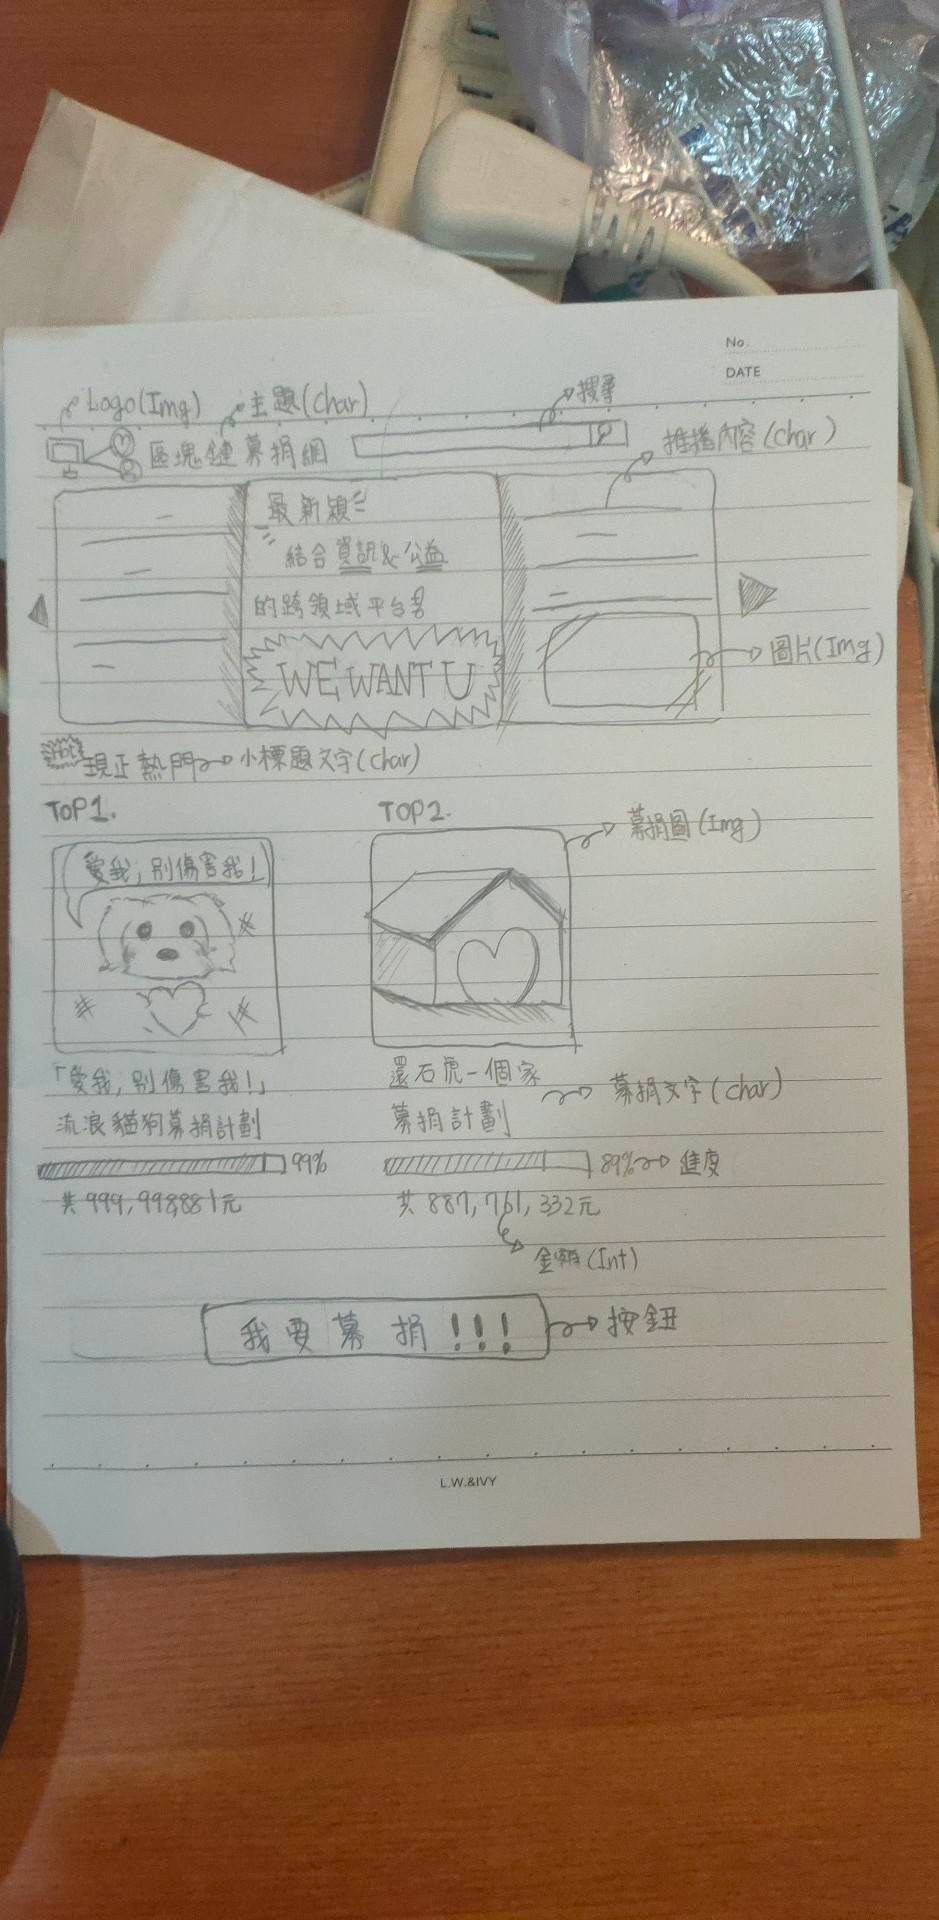 No.
DATE
Logo(Img) 主題(char) 搜尋
區塊鏈募捐網 推播內容(char)
最新穎
結合資訊&公益
的跨領域平台
WE WANT U
圖片(Img)
Hot 現正熱門 小標題文字(char)
TOP1. TOP2.
募捐圖(Img)
愛我,別傷害我!
「愛我,別傷害我!」
流浪貓狗募捐計劃
還石虎一個家
募捐計劃
募捐文字(char)
99% 89% 進度
共999,998,881元 共887,761,332元
金額(Int)
我要募捐!!! 按鈕
L.W.&IVY